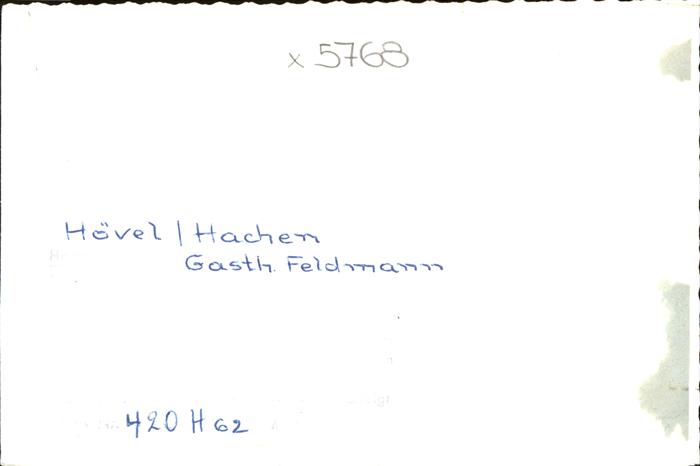 x 5768
Hövel | Hachen
Gasth. Feldmann
420 H 62